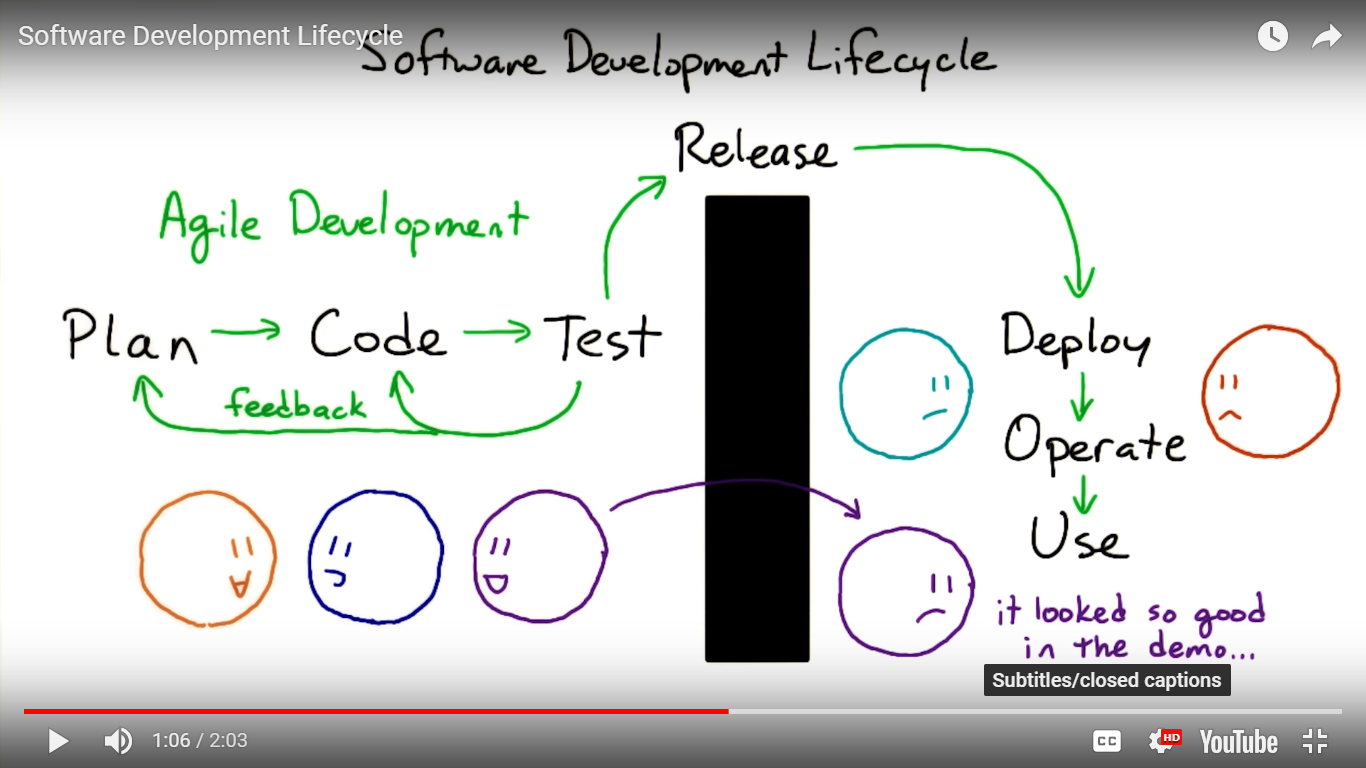 Software Development Lifecycle
Software Development Lifecycle
Release
Agile Development
Plan Code Test
feedback
Deploy
Operate
Use
it looked so good
in the demo...
Subtitles/closed captions
1:06 / 2:03
CC HD YouTube